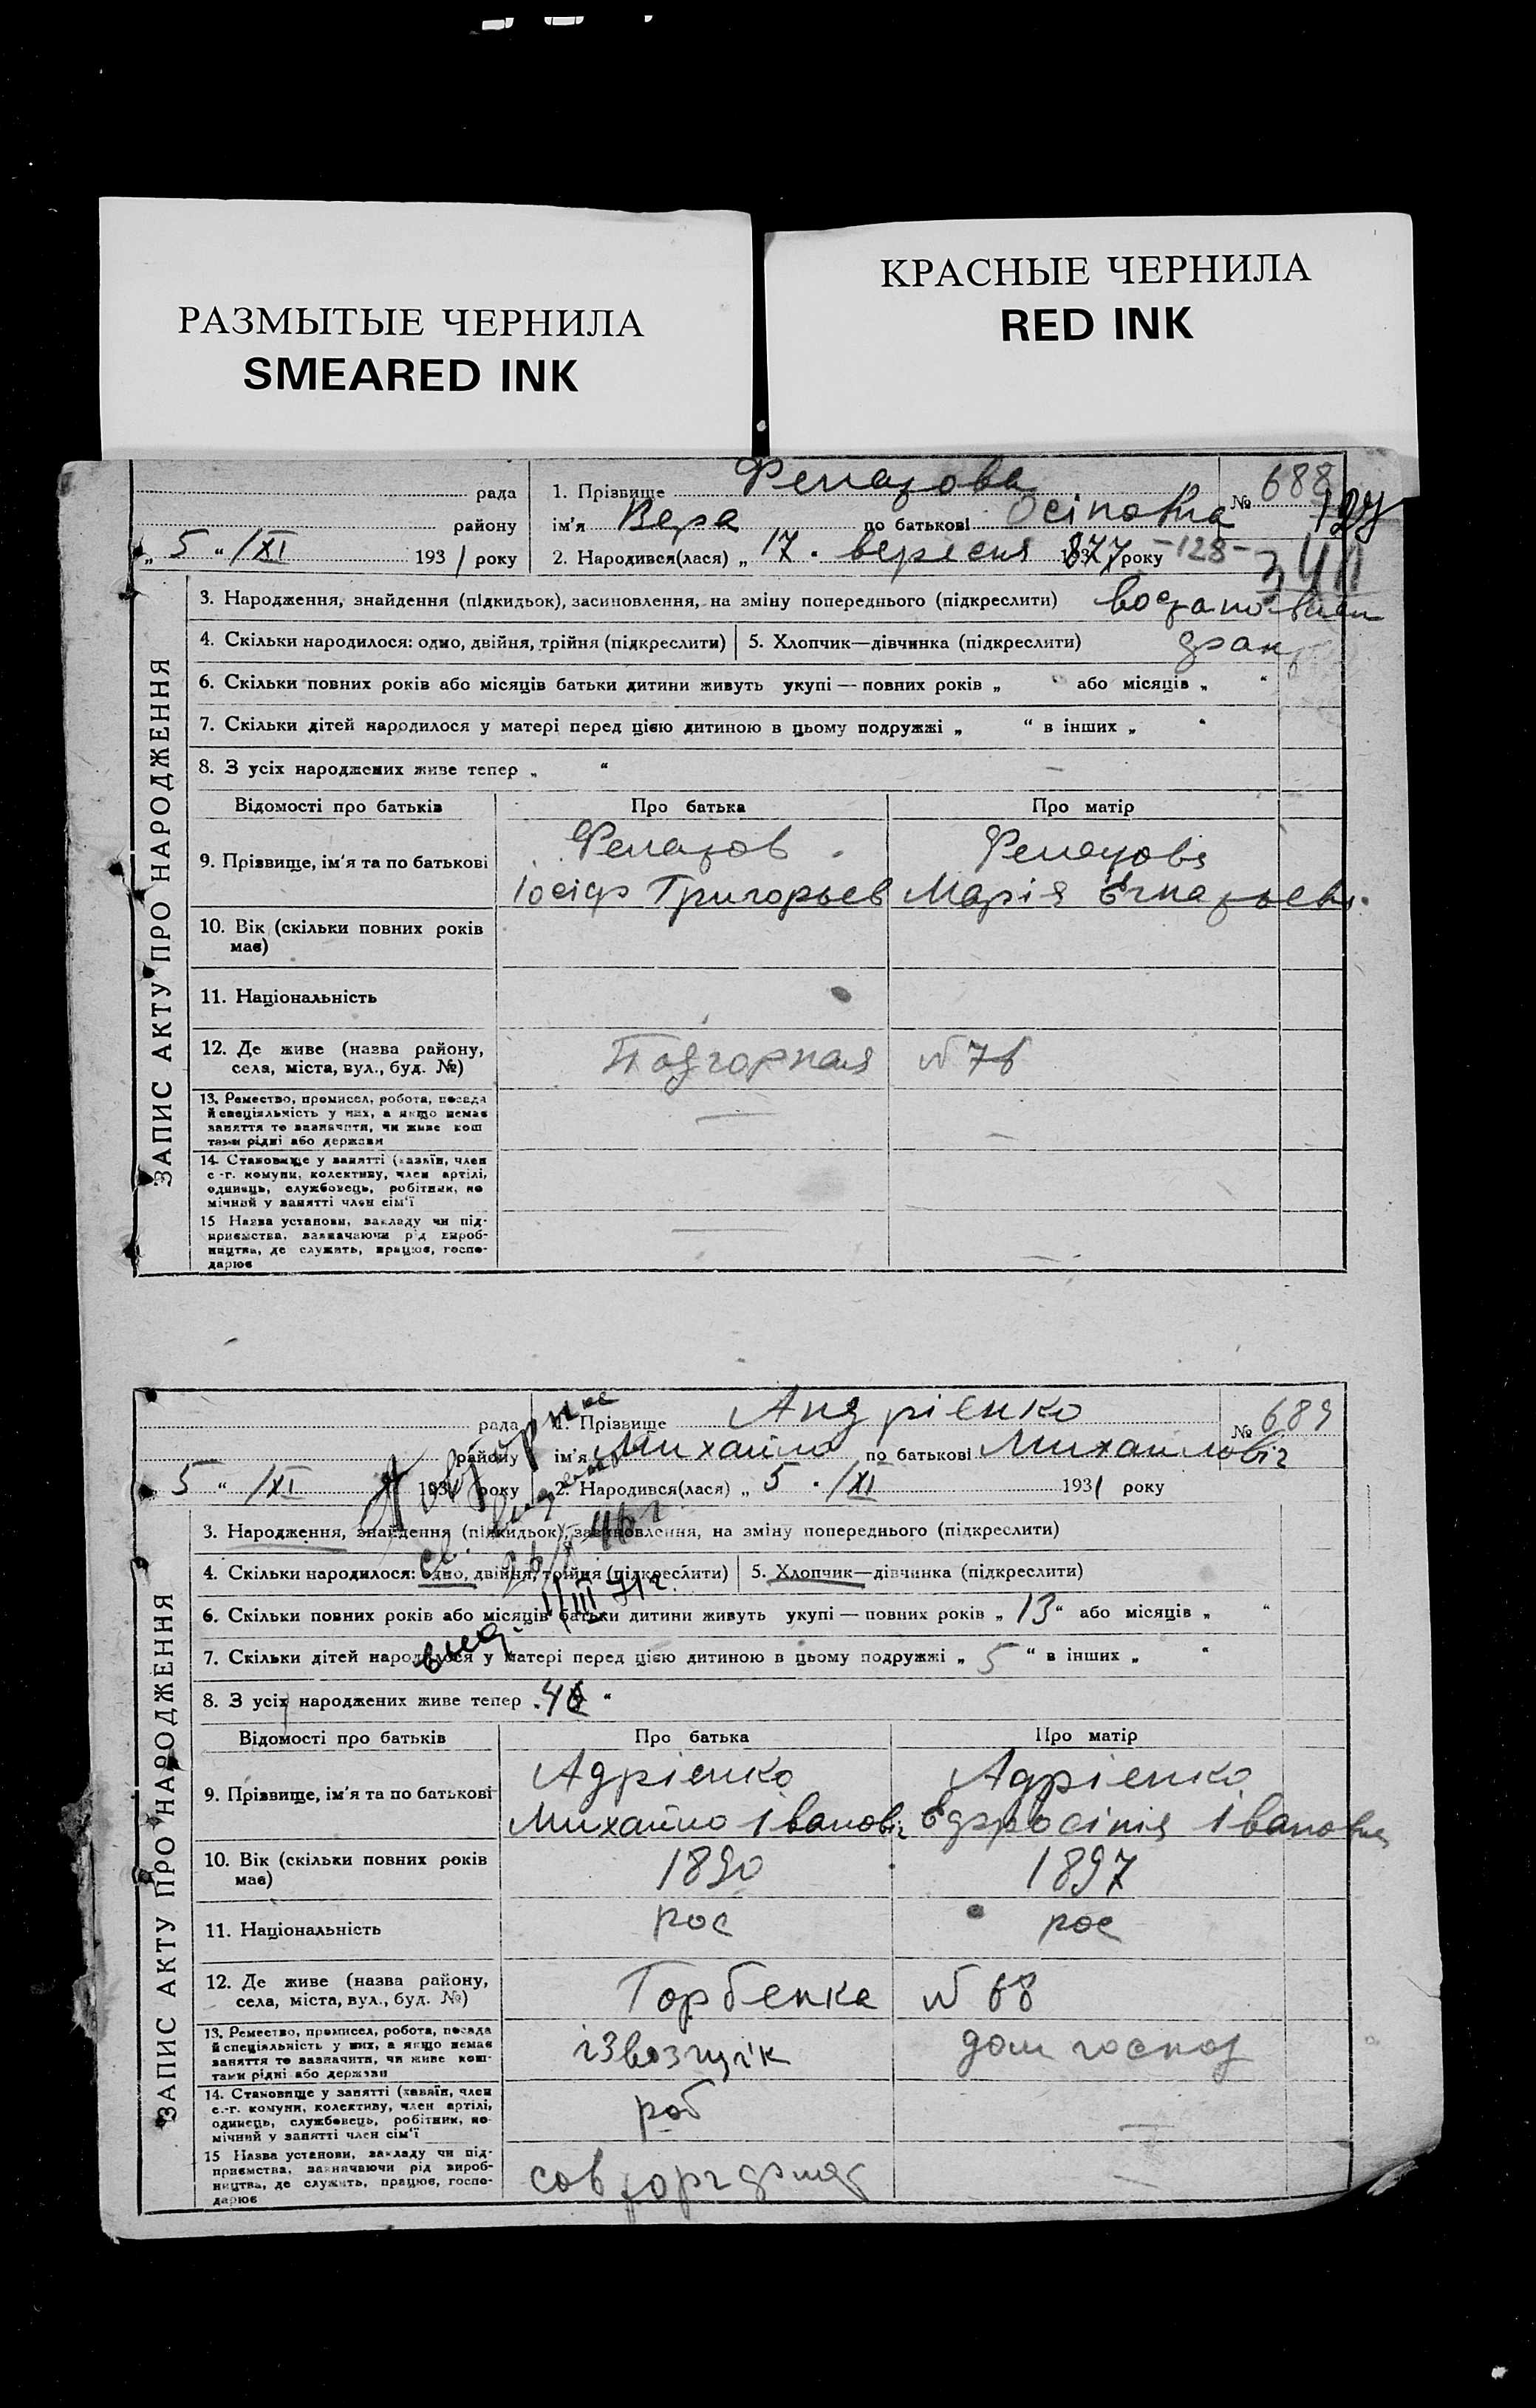 РАЗМЫТЫЕ ЧЕРНИЛА
SMEARED INK
КРАСНЫЕ ЧЕРНИЛА
RED INK
ЗАПИС АКТУ ПРО НАРОДЖЕННЯ
рада
району
„ 5 “ /XI 1931 року
1. Прізвище
№ 688
ім'я Вера по батькові Осіповна
2. Народився(лася) „ 17 . вересня 1877 року -128-
3. Народження, знайдення (підкидьок), засиновлення, на зміну попереднього (підкреслити)
4. Скільки народилося: одно, двійня, трійня (підкреслити) 5. Хлопчик—дівчинка (підкреслити)
6. Скільки повних років або місяців батьки дитини живуть укупі — повних років „ “ або місяців „ “
7. Скільки дітей народилося у матері перед цією дитиною в цьому подружжі „ “ в інших „ “
8. З усіх народжених живе тепер „ “
Відомості про батьків Про батька Про матір
9. Прізвище, ім'я та по батькові
Іосіф Григорьев Марія
10. Вік (скільки повних років має)
11. Національність
12. Де живе (назва району, села, міста, вул., буд. №)
Подгорная
13. Ремество, промисел, робота, посада
й спеціяльність у них, а якщо немає
заняття то вазначити, чи живе кош
тами рідні або держави
14. Становище у занятті (хазяїн, член
с.-г. комуни, колективу, член артілі,
одинець, службовець, робітник, по
мічний у занятті член сім'ї
15 Назва установи, закладу чи під-
приємства, зазначаючи рід вироб-
ництва, де служить, працює, госпо-
дарює
ЗАПИС АКТУ ПРО НАРОДЖЕННЯ
рада
району
5 “ /XI 193 року
1. Прізвище Андрієнко
№ 689
ім'я Михайло по батькові Михайловіч
2. Народився(лася) „ 5 . /XI 1931 року
3. Народження, знайдення (підкидьок), засиновлення, на зміну попереднього (підкреслити)
4. Скільки народилося: одно, двійня, трійня (підкреслити) 5. Хлопчик—дівчинка (підкреслити)
6. Скільки повних років або місяців батьки дитини живуть укупі — повних років „ 13 “ або місяців „ “
7. Скільки дітей народилося у матері перед цією дитиною в цьому подружжі „ 5 “ в інших „ “
8. З усіх народжених живе тепер
Відомості про батьків Про батька Про матір
9. Прізвище, ім'я та по батькові
Адрієнко Адрієнко
Михайло Івановіч Єфросінія Івановна
10. Вік (скільки повних років має) 1890 1897
11. Національність рос рос
12. Де живе (назва району, села, міста, вул., буд. №)
Горбенка № 68
13. Ремество, промисел, робота, посада
й спеціяльність у них, а якщо немає
заняття то вазначити, чи живе кош-
тами рідні або держави
ізвозчік дом господ
14. Становище у занятті (хазяїн, член
с.-г. комуни, колективу, член артілі,
одинець, службовець, робітник, по-
мічний у занятті член сім'ї
роб
15 Назва установи, закладу чи під-
приємства, зазначаючи рід вироб-
ництва, де служить, працює, госпо-
дарює